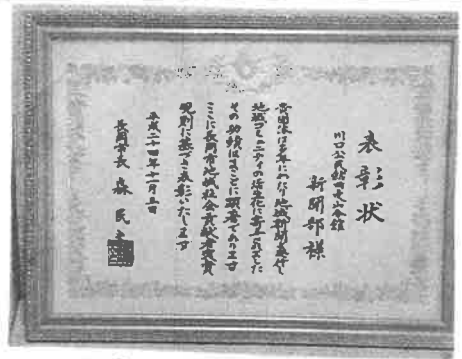 表彰状
川口公民館田麦山分館
新聞部様
貴団体は多年にわたり地域新聞を発行し
地域コミュニティの活性化に寄与されました
その功績はまことに顕著であります
ここに長岡市地域社会貢献者褒賞
規則に基づき表彰いたします
平成二十四年十一月三日
長岡市長 森民夫